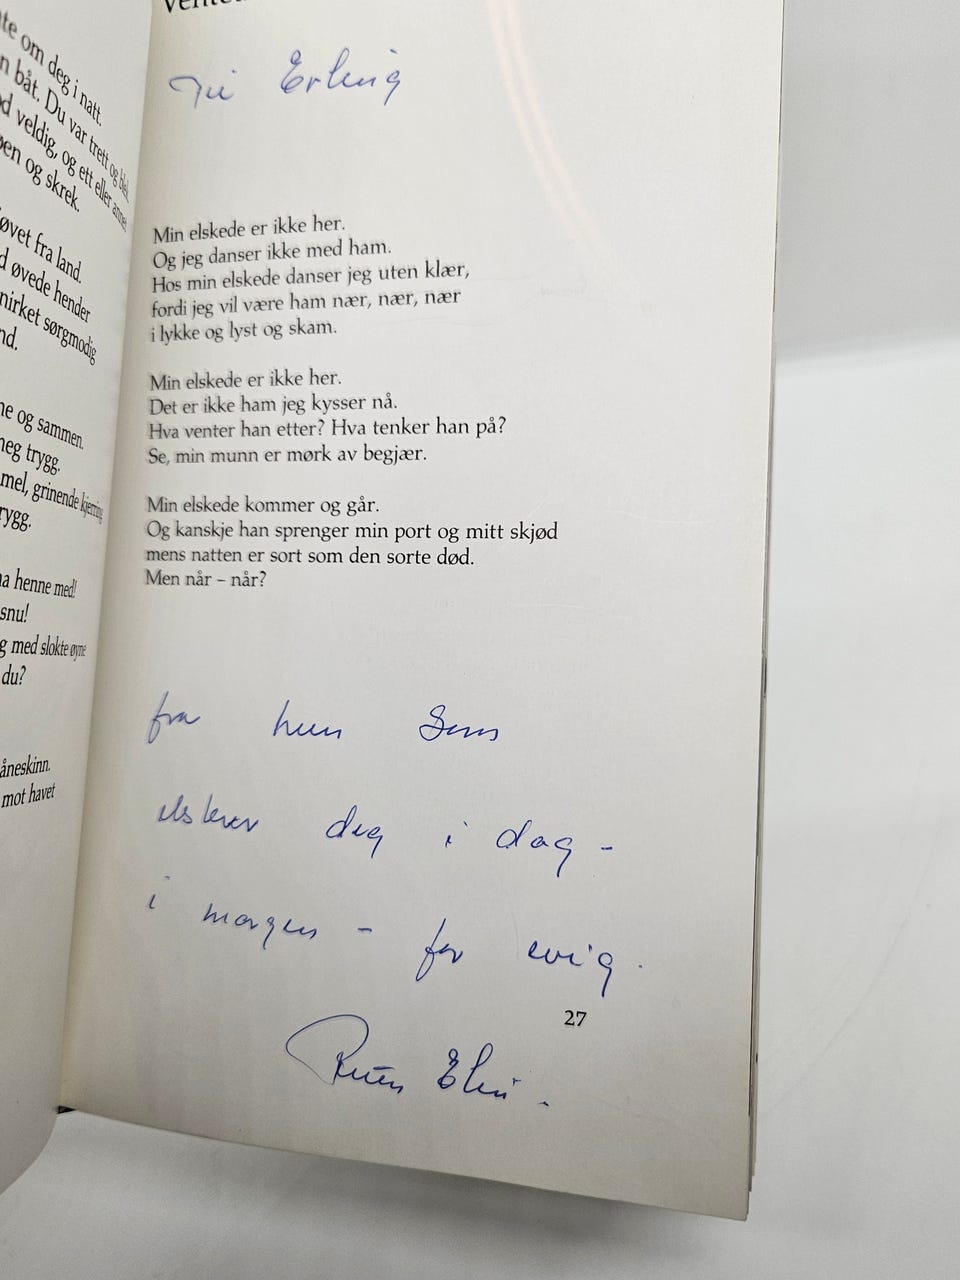 te om deg i natt.
n båt. Du var trett og blek.
d veldig, og ett eller annet
pen og skrek.
øvet fra land.
d øvede hender
nirket sørgmodig
nd.
ne og sammen.
neg trygg.
mel, grinende kjerring
rygg.
na henne med!
snu!
g med slokte øyne
du?
åneskinn.
mot havet
Til Erling
Min elskede er ikke her.
Og jeg danser ikke med ham.
Hos min elskede danser jeg uten klær,
fordi jeg vil være ham nær, nær, nær
i lykke og lyst og skam.
Min elskede er ikke her.
Det er ikke ham jeg kysser nå.
Hva venter han etter? Hva tenker han på?
Se, min munn er mørk av begjær.
Min elskede kommer og går.
Og kanskje han sprenger min port og mitt skjød
mens natten er sort som den sorte død.
Men når – når?
fra hun som
elsker deg i dag -
i morgen - for evig.
27
Elin.